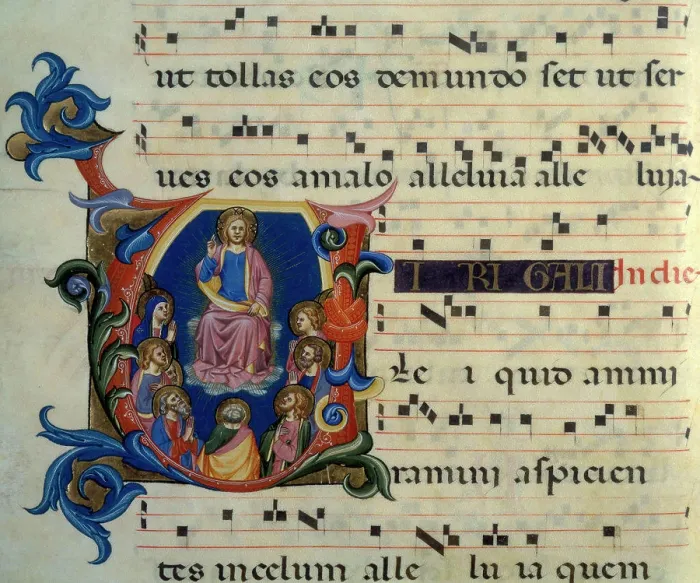 ut tollas eos demundo set ut ser
ues eos amalo alleluia alle luia-
I RI GALI In die-
Le i quid ammi
ramini aspicien
tes incelum alle lu ia quem